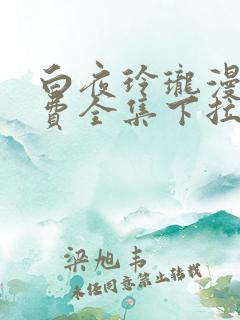 白夜玲瓏漫
費全集下拉
梁旭韦
未经同意禁止转载